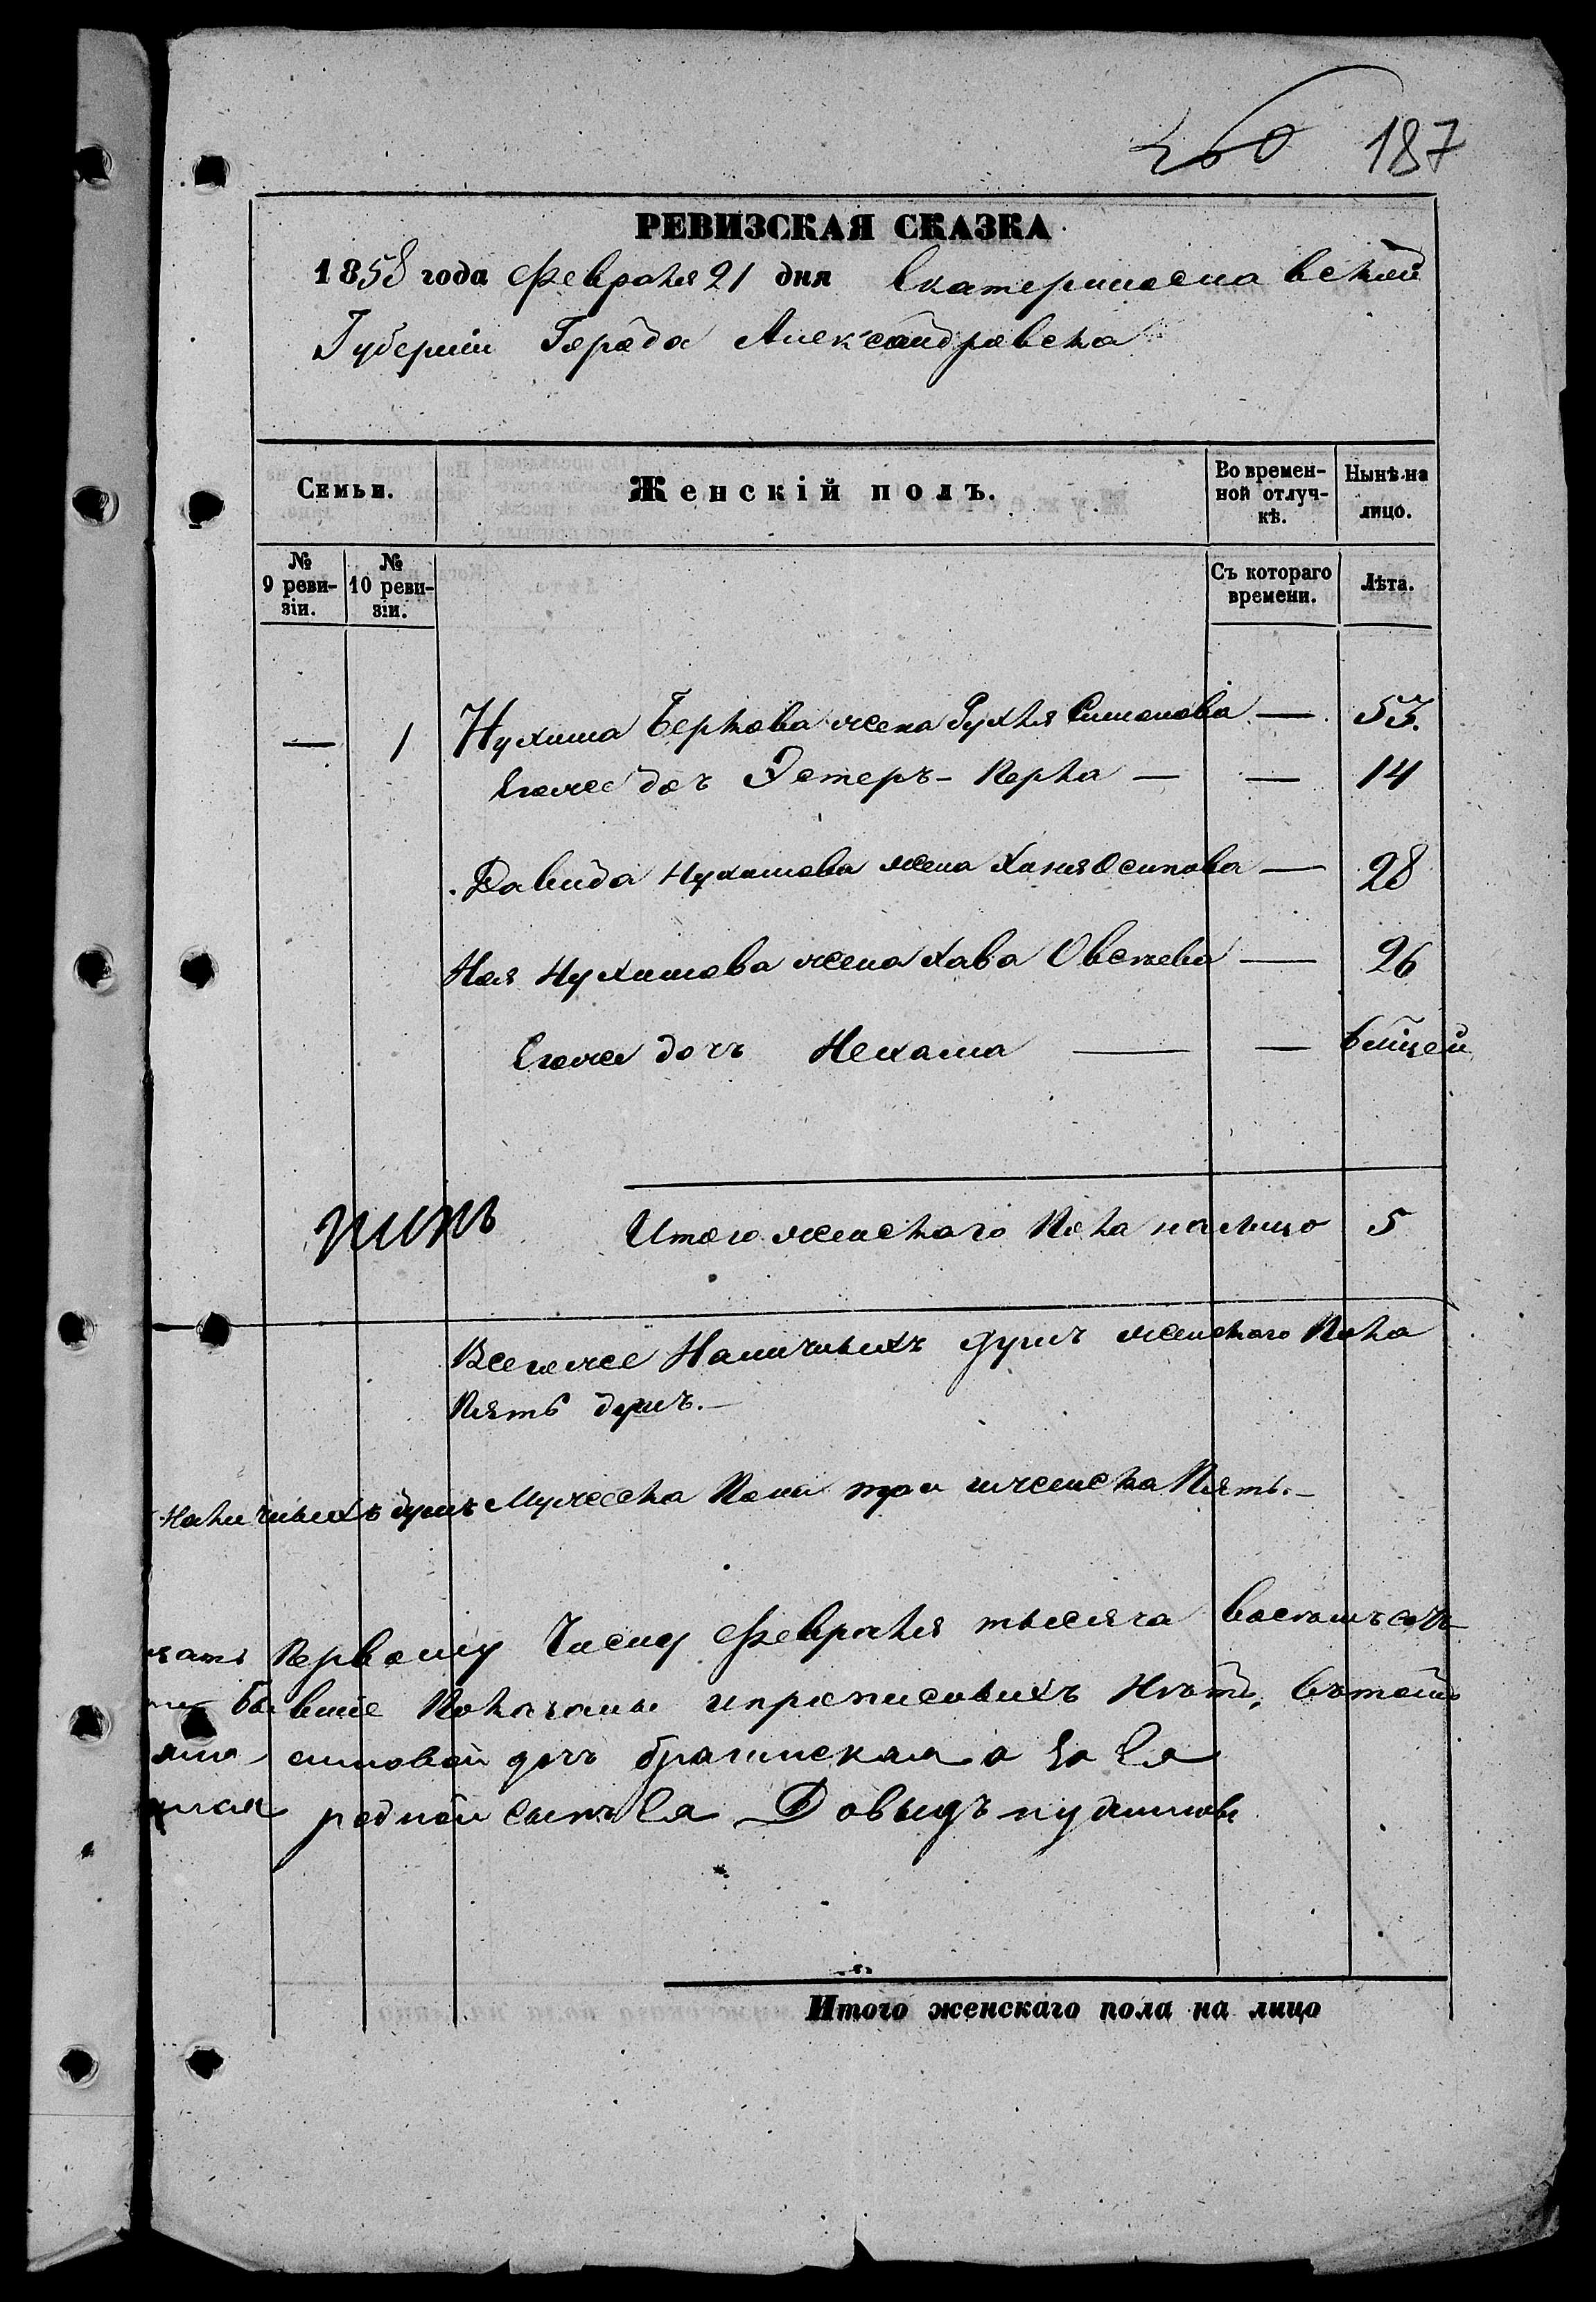 260 187
РЕВИЗСКАЯ СКАЗКА
1858 года Февраля 21 дня Екатеринославской
Губерніи Города Александровска
Семьи. Женскій полъ. Во времен-ной отлуч-кѣ. Нынѣ на лицо.
№ 9 реви-зіи. № 10 реви-зіи. Съ котораго времени. Лѣта.
— 1 Нухима Беркова жена Рухля Симонова — 53.
Егоже доч Эстеръ-Перла — — 14
Давида Нухимова жена Ханя Осипова — 28
Ноя Нухимова жена Хава Овсеева — 26
Егоже дочъ Нехама — — 6 мѣсец
Итого женскаго Пола налицо 5
Всегоже Наличныхъ душъ женскаго Пола
Пять душъ.—
Наличныхъ душъ Мужеска Пола три и женска Пять.—
Первому Числу Февраля тысяча восемъсотъ
бывшіе Показаны и прописныхъ Нѣтъ, вътомъ
симовой дочъ а За Ея
родной сынъ Ея Довыдъ нухимовъ
Итого женскаго пола на лицо